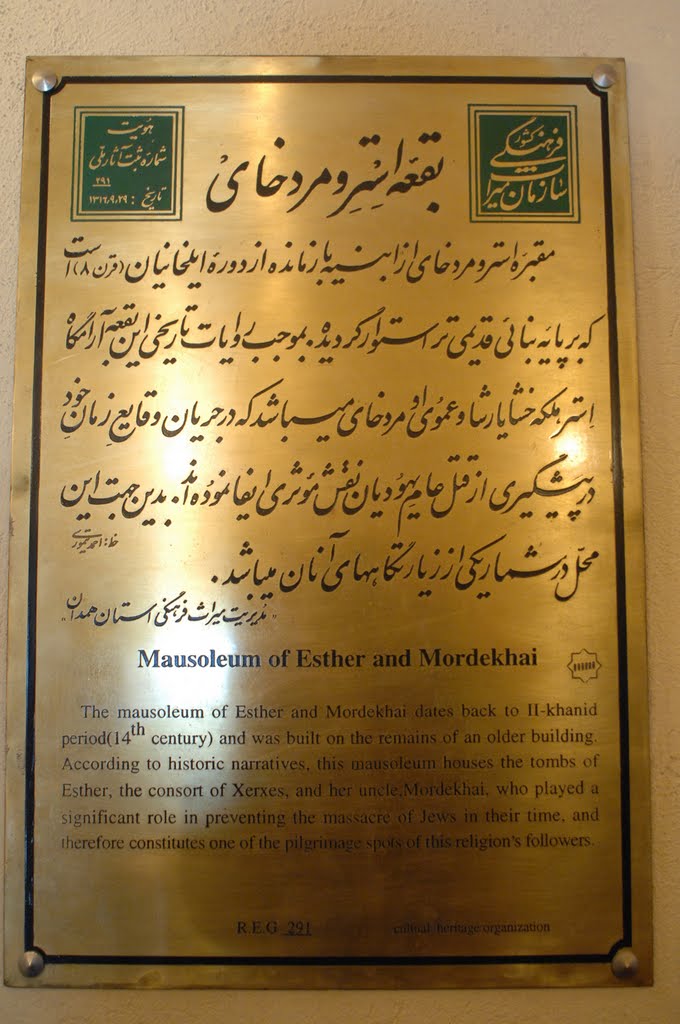 هویت
شماره ثبت آثار ملی
۲۹۱
تاریخ : ۱۳۱۶،۹،۲۹
سازمان میراث
فرهنگی کشور
بقعه استِرِ و مردخای
مقبره استر و مردخای از ابنیه بازمانده از دوره ایلخانیان (قرن ۸) است
که بر پایه بنائی قدیمی تر استوار گردیده. بموجب روایات تاریخی این بقعه آرامگاه
اِستر ملکه خشایارشا و عموی او مردخای میباشد که در جریان وقایعِ زمانِ خود
در پیشگیری از قتل عام یهودیان نقش مؤثری ایفا نموده اند. بدین جهت این
محلّ در شمار یکی از زیارتگاههای آنان میباشد.
خط: احمد تیموری
"مدیریت میراث فرهنگی استان همدان"
Mausoleum of Esther and Mordekhai
The mausoleum of Esther and Mordekhai dates back to II-khanid
period(14th century) and was built on the remains of an older building.
According to historic narratives, this mausoleum houses the tombs of
Esther, the consort of Xerxes, and her uncle,Mordekhai, who played a
significant role in preventing the massacre of Jews in their time, and
therefore constitutes one of the pilgrimage spots of this religion's followers.
R.E.G 291
cultual heritage organization